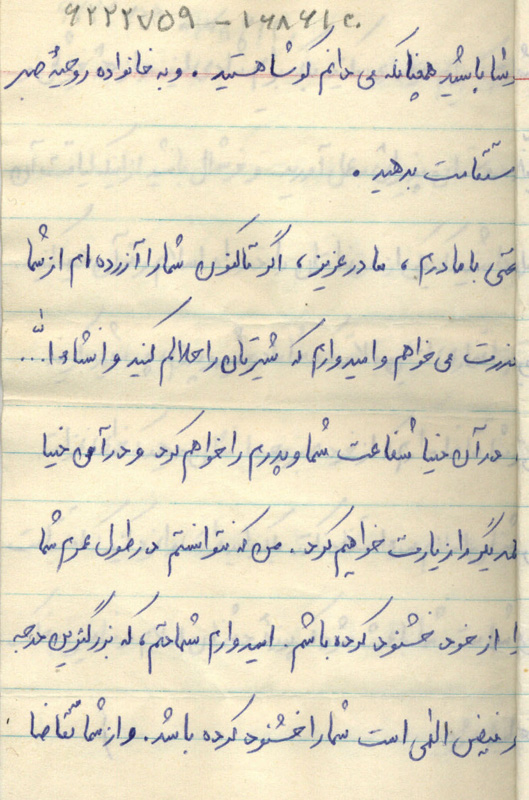 ۶۲۲۲۷۵۹ - ۱۶۸۶۱۲۰
باشید همچنانکه می دانم کوشا هستید. و به خانواده روحیهٔ صبر
ستقامت بدهید.
با مادرم، مادر عزیز، اگر تاکنون شما را آزرده ام از شما
می خواهم و امیدوارم که شیرتان را حلالم کنید و انشاءا...
در آن دنیا شفاعت شما و پدرم را خواهم کرد و در آن دنیا
همدیگر را زیارت خواهیم کرد. من که نتوانستم در طول عمرم شما
را از خود خشنود کرده باشم. امیدوارم شهادتم، که بزرگترین درجه
فیض الهی است شما را خشنود کرده باشد. و از شما تقاضا